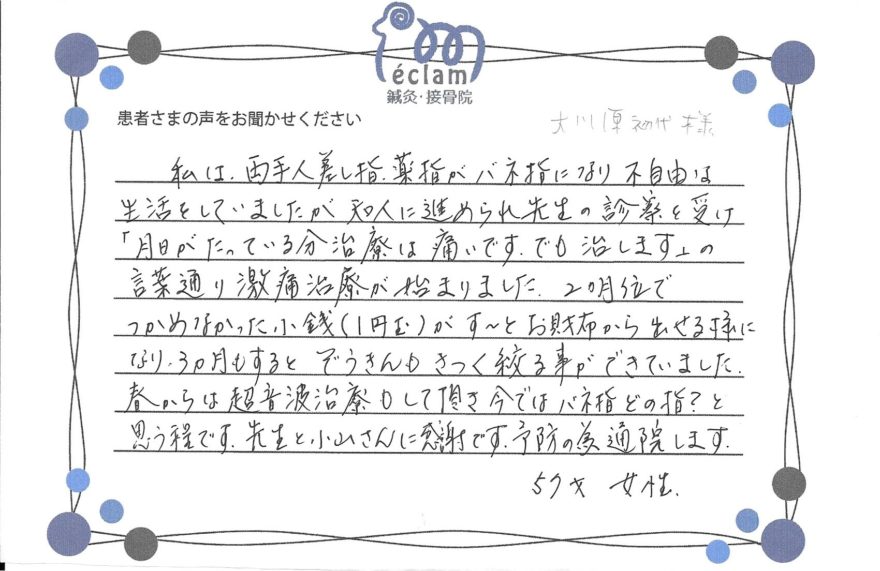 éclam
鍼灸・接骨院
患者さまの声をお聞かせください
大川原 初代 様
私は、両手人差し指、薬指がバネ指になり不自由な
生活をしていましたが知人に進められ先生の診察を受け
「月日がたっている分治療は痛いです。でも治します」の
言葉通り激痛治療が始まりました。2ヶ月位で
つかめなかった小銭(1円玉)がす〜とお財布から出せる様に
なり、3ヶ月もするとぞうきんもきつく絞る事ができていました。
春からは超音波治療もして頂き今ではバネ指どの指?と
思う程です。先生と小山さんに感謝です。予防の為通院します。
57才 女性.